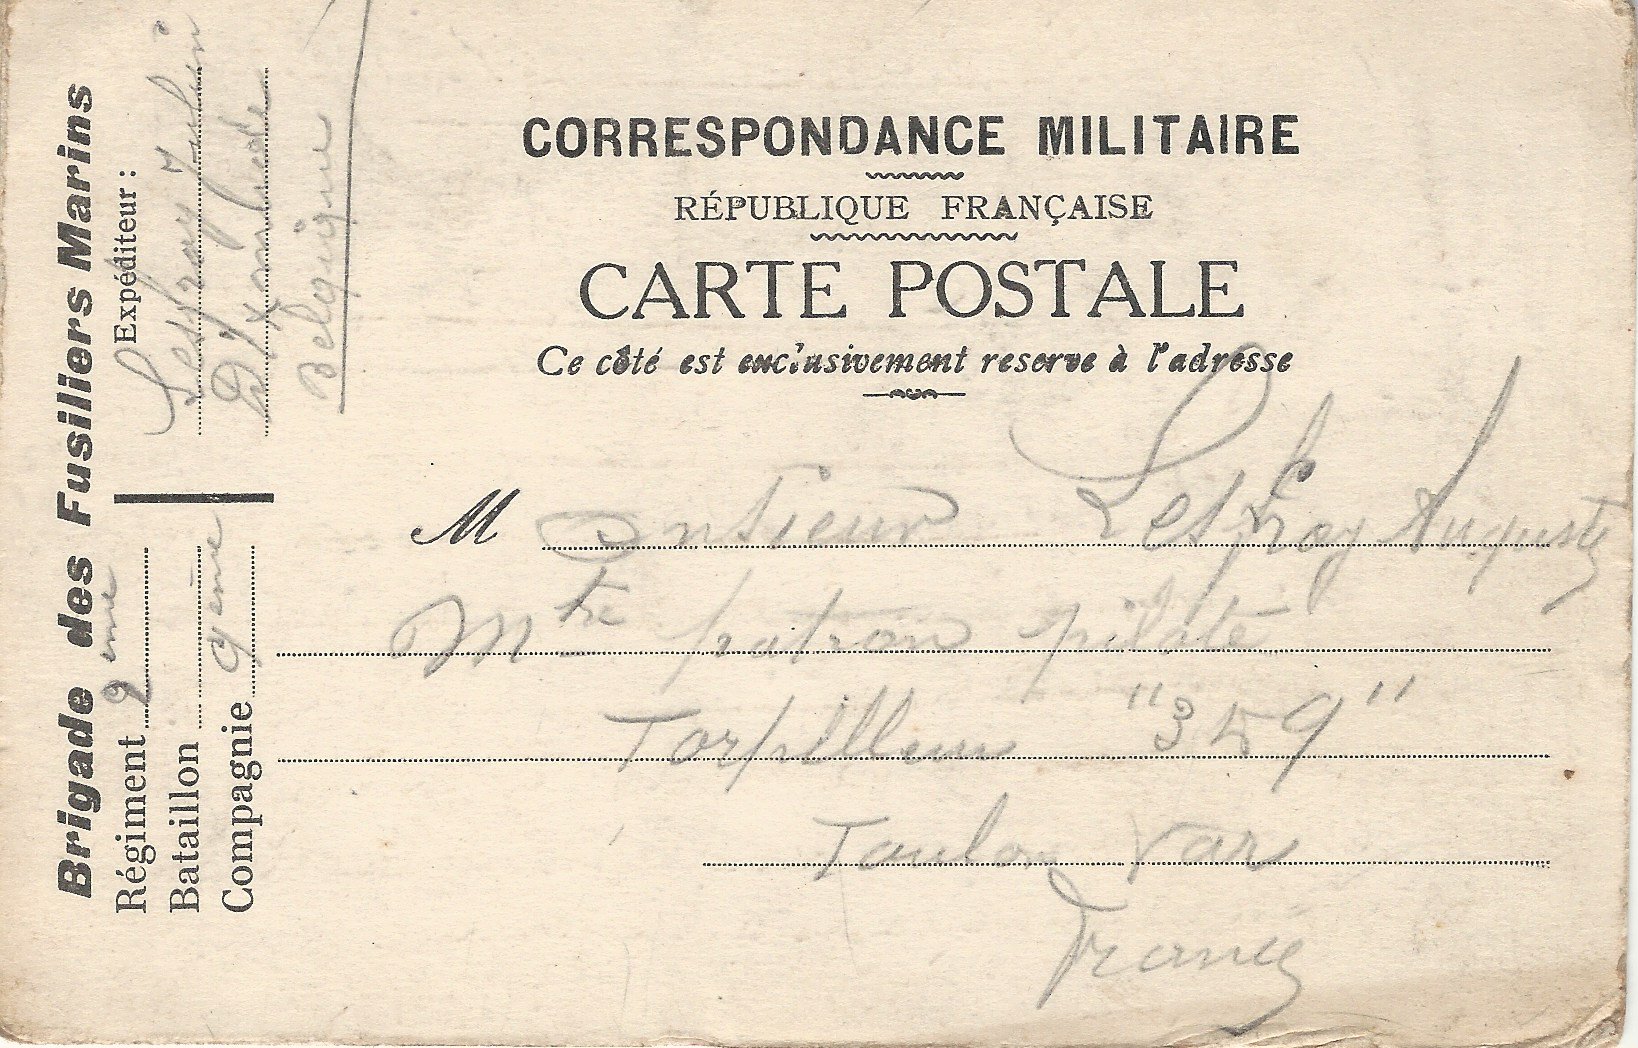 CORRESPONDANCE MILITAIRE
RÉPUBLIQUE FRANÇAISE
CARTE POSTALE
Ce côté est exclusivement reserve à l'adresse
M onsieur Lesfray Auguste
Mtre patron pilote
Torpilleur "359"
Toulon Var
France
Brigade des Fusiliers Marins
Expéditeur :
Lesfray
Belgique
Régiment 2 eme
Bataillon
Compagnie 9 eme